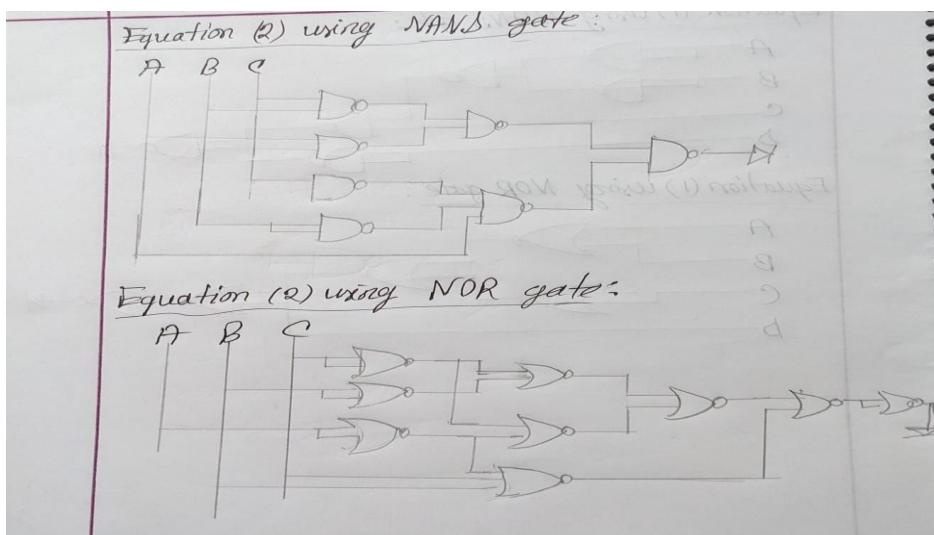 Equation (2) using NAND gate:
A B C
Equation (2) using NOR gate:
A B C